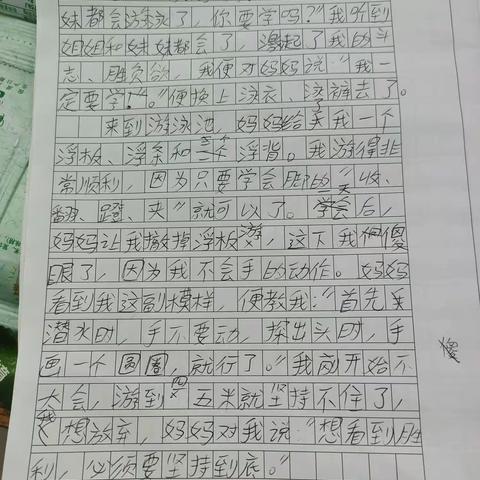 妹都会游泳了，你要学吗？”我听到
姐姐和妹妹都会了，激起了我的斗
志、胜负欲，我便对妈妈说：“我一
定要学！”。便换上泳衣、泳裤去了。
来到游泳池，妈妈给了我一个
浮板、浮条和三个浮背。我游得非
常顺利，因为只要学会脚的“收、
翻、蹬、夹”就可以了。学会后，
妈妈让我撤掉浮板游，这下我傻
眼了，因为我不会手的动作。妈妈
看到我这副模样，便教我：“首先
潜水时，手不要动，探出头时，手
画一个圆圈，就行了。”我刚开始不
大会，游到四五米就坚持不住了，
我想放弃，妈妈对我说：“想看到胜
利，必须要坚持到底。”